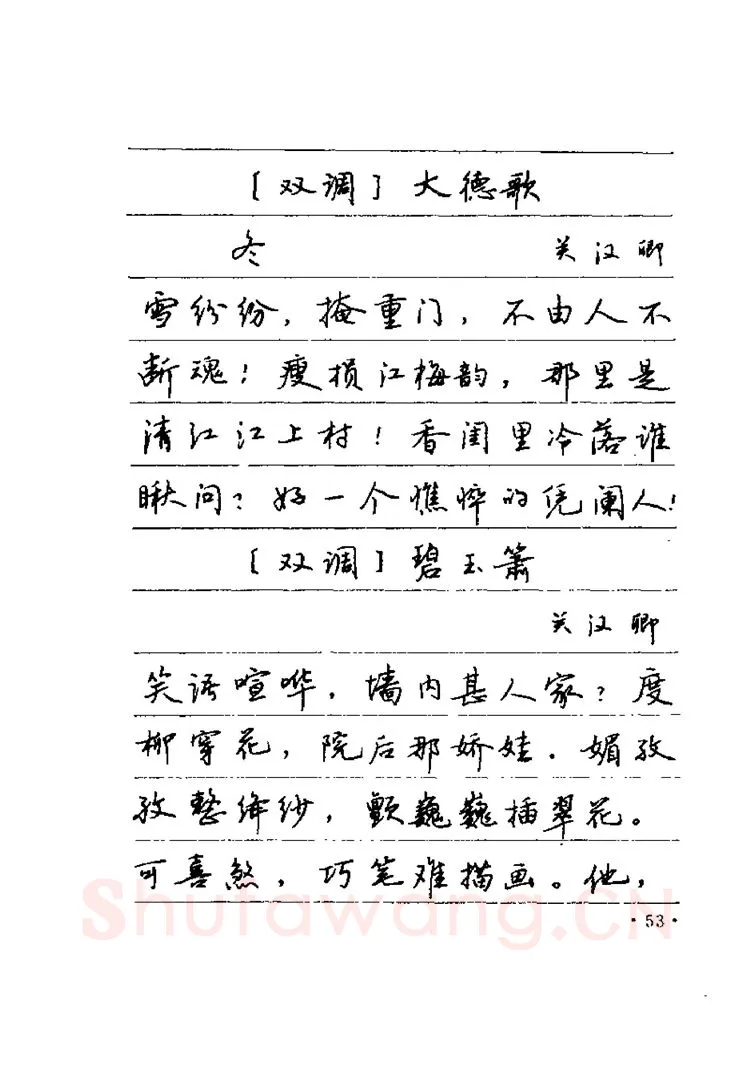 [双调] 大德歌
冬 关汉卿
雪纷纷，掩重门，不由人不
断魂！瘦损江梅韵，那里是
清江江上村！香闺里冷落谁
瞅问？好一个憔悴的凭阑人！
[双调] 碧玉箫
关汉卿
笑语喧哗，墙内甚人家？度
柳穿花，院后那娇娃。媚孜
孜整绛纱，颤巍巍插翠花。
可喜煞，巧笔难描画。他，
·53·
Shufawang.CN